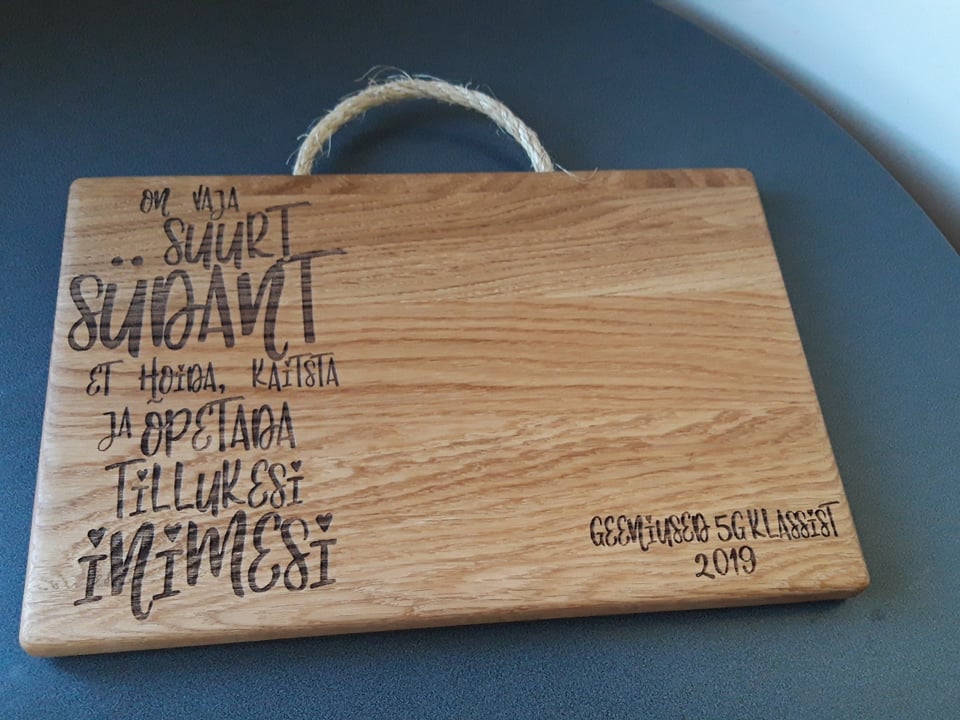 ON VAJA
SUURT
SÜDANT
ET HOIDA, KAITSTA
JA ÕPETADA
TILLUKESI
INIMESI
GEENIUSED 5G KLASSIST
2019